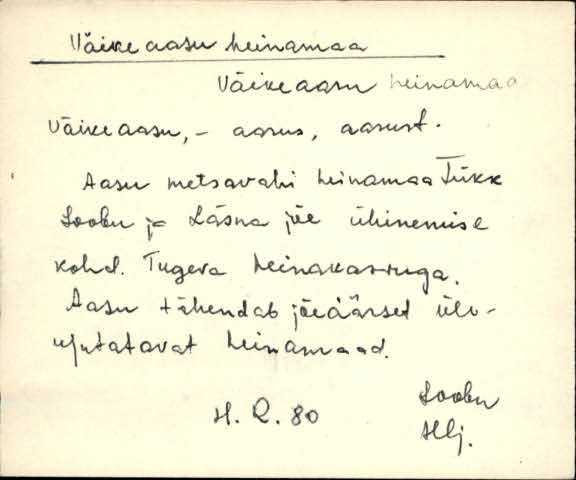 Väike aasu heinamaa
Väike aasu heinamaa
Väike aasu, - aasus, aasust.
Aasu metsavahi heinamaa Tükk
Loobu ja Läsna jõe ühinemise
kohal. Tugeva heinakasvuga.
Aasu tähendab jõeäärset üle-
ujutatavat heinamaad.
H. R. 80
Loobu
Hlj.